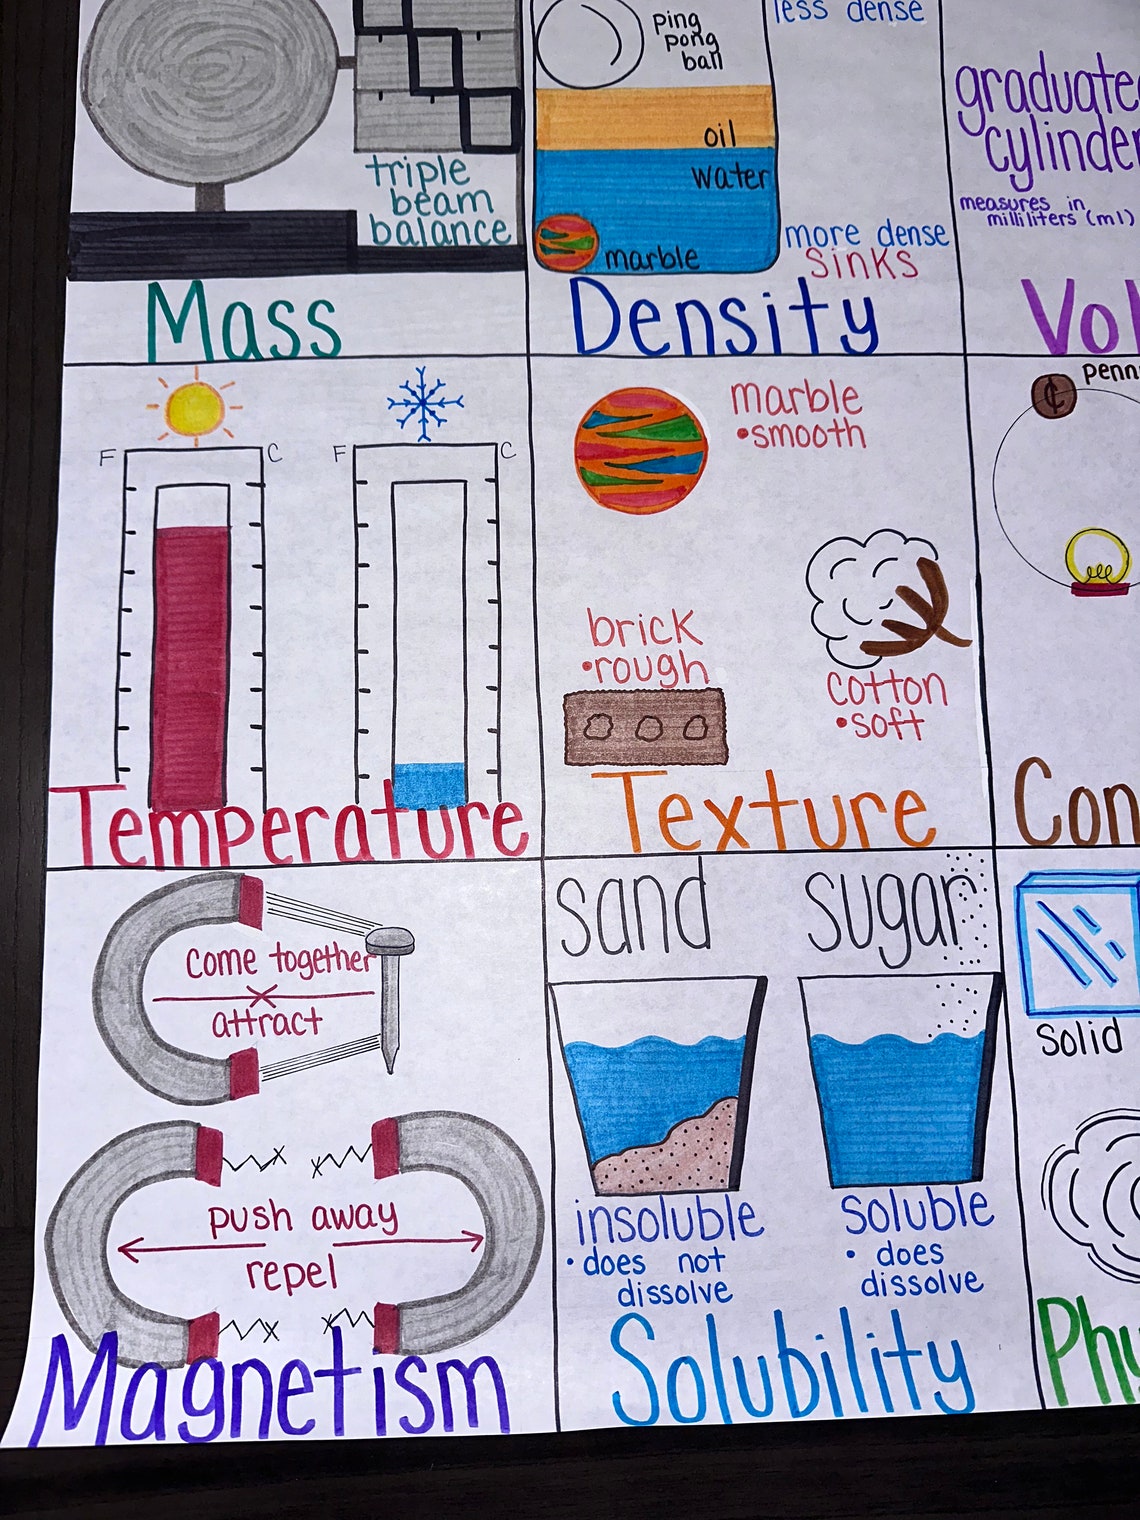 triple
beam
balance
Mass
ping
pong
ball
oil
water
marble
less dense
more dense
sinks
Density
graduated
cylinder
measures in
milliliters (ml)
Vol
F
C
F
C
Temperature
marble
•smooth
brick
•rough
cotton
•soft
Texture
penn
¢
Con
come together
attract
push away
repel
Magnetism
sand
sugar
insoluble
• does not
dissolve
soluble
• does
dissolve
Solubility
solid
Phy